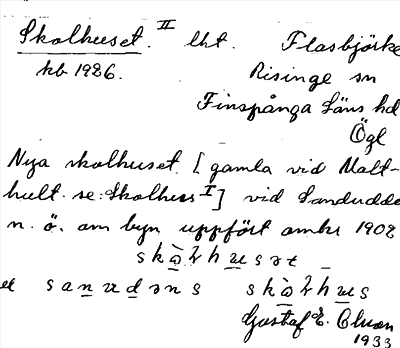 Skolhuset. II lht. Flasbjörke
kb 1926. Risinge sn
Finspånga Läns hd
Ögl
Nya skolhuset [gamla vid Malt-
hult. se: Skolhus I] vid Sandudde
n. ö. om byn uppfört omkr 1902
skɷ̀ɫhusət
sanudəns skɷ̀ɫhus
Gustaf E.
1933